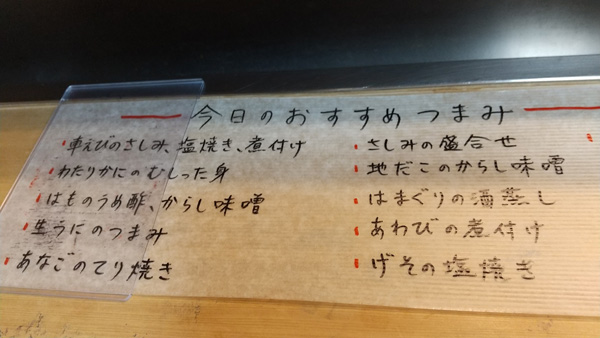 今日のおすすめつまみ
車えびのさしみ、塩焼き、煮付け
わたりかにのむしった身
はものうめ酢、からし味噌
生うにのつまみ
あなごのてり焼き
さしみの盛合せ
地だこのからし味噌
はまぐりの酒蒸し
あわびの煮付け
げその塩焼き